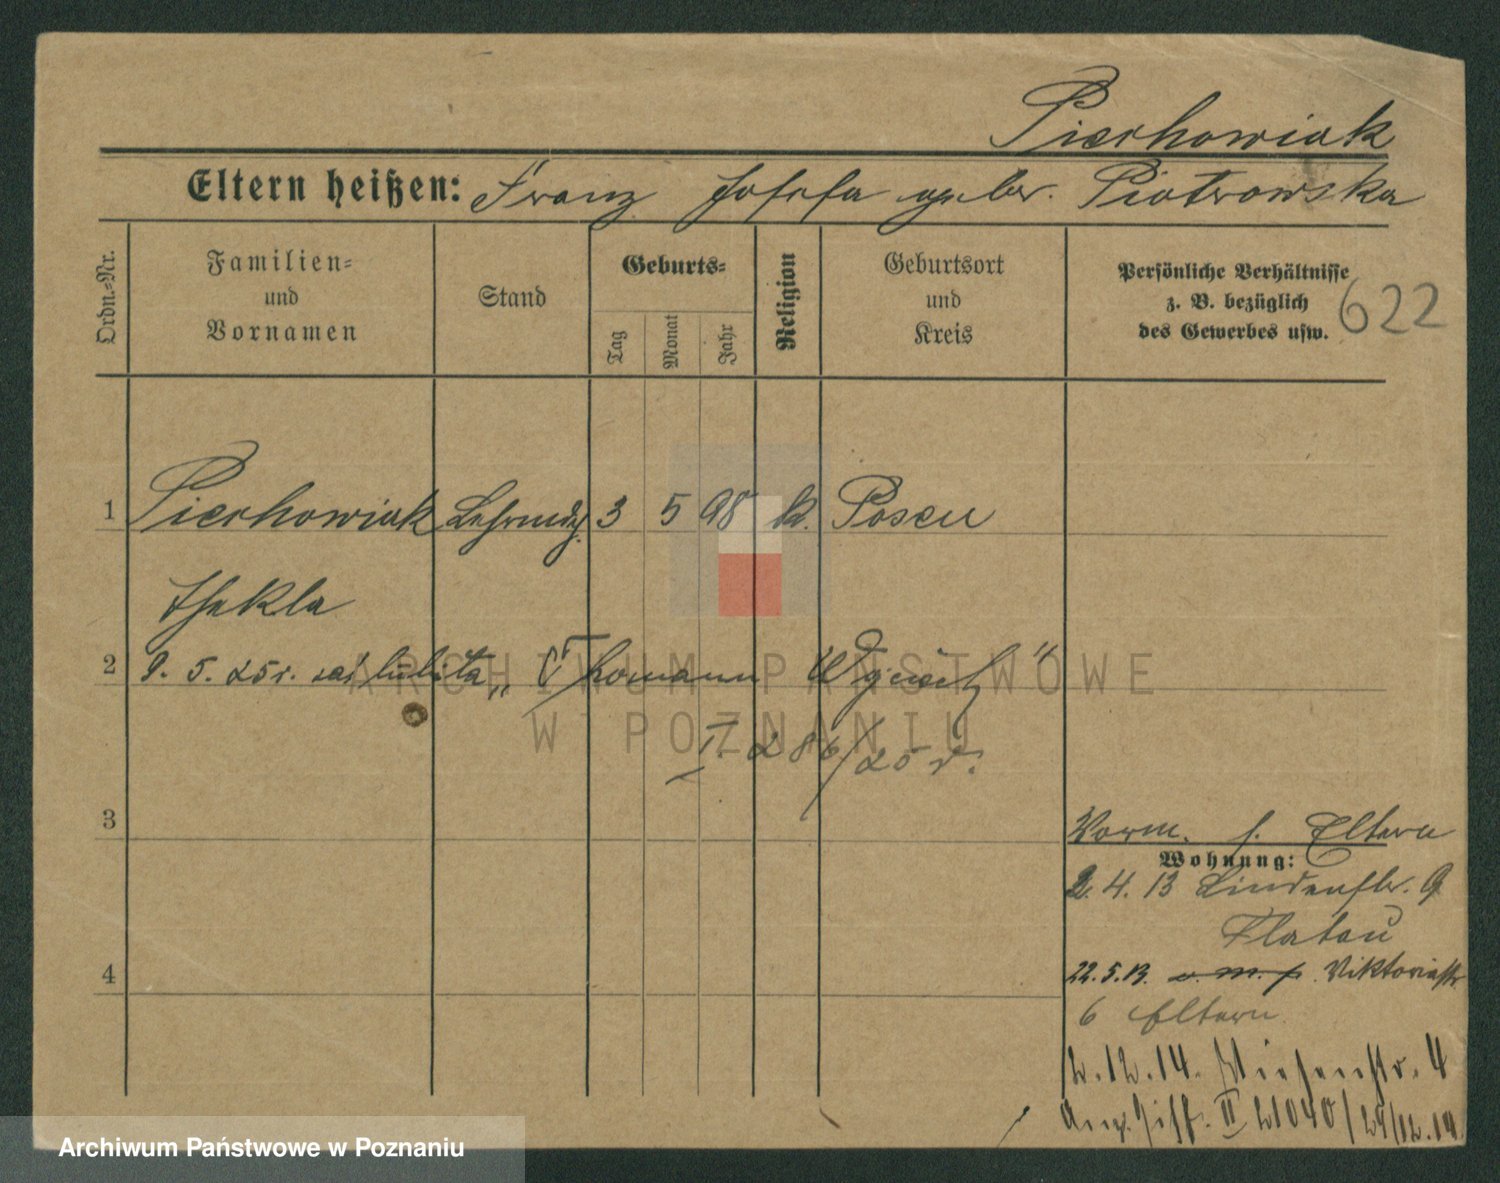 Pierhowiak
Eltern heißen: Franz Josefa geb. Piotrowska
Ordn.=Nr.
Familien=
und
Vornamen
Stand
Geburts=
Tag
Monat
Jahr
Religion
Geburtsort
und
Kreis
Persönliche Verhältnisse
z. B. bezüglich
des Gewerbes usw.
622
1 Pierhowiak Lehrmdch. 3 5 98 k. Posen
Thekla
2 9. 5. 25 r.
I. 286/25 r.
3
Vorm. s. Eltern
Wohnung:
2. 4. 13 Lindenstr. 9
Flatau
22. 5. 13. Viktoriastr
4
6 Eltern
2. 12. 14. Wiesenstr. 4
II 21040/29/12.14
ARCHIWUM PAŃSTWOWE
W POZNANIU
Archiwum Państwowe w Poznaniu